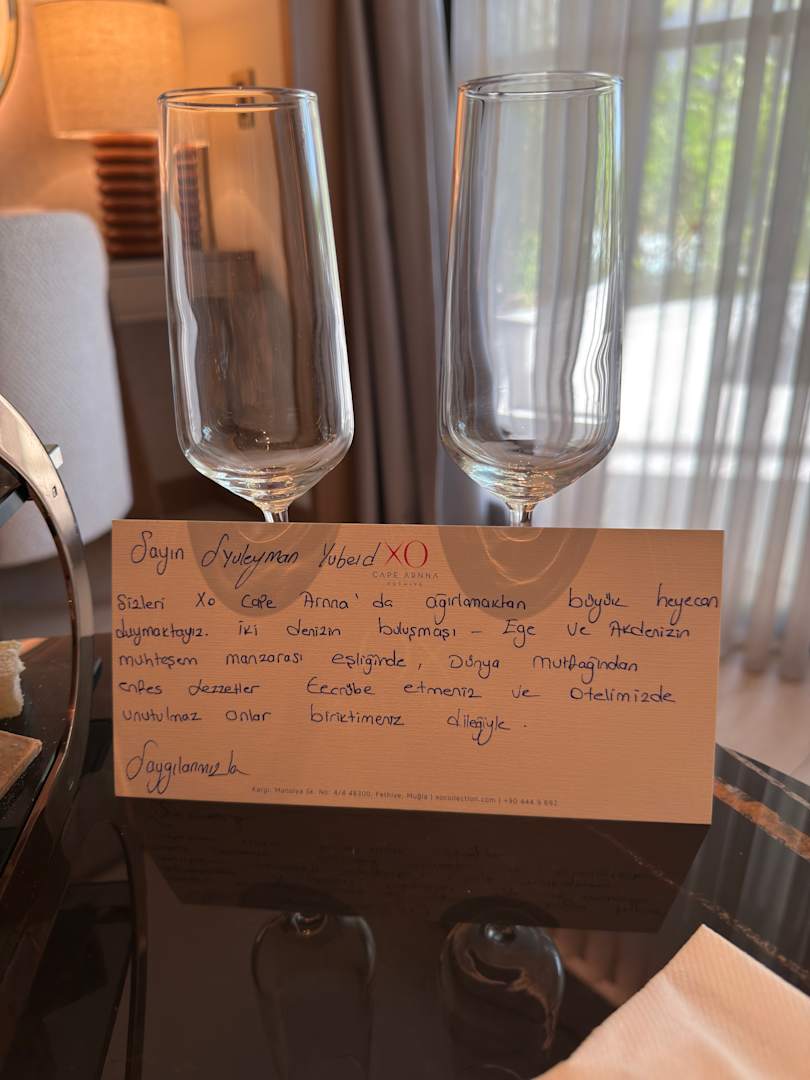 Sayın Syuleyman Yubeid
XO
CAPE ARNNA
FETHIYE
Sizleri Xo Cape Arnna'da ağırlamaktan büyük heyecan
duymaktayız. İki denizin buluşması - Ege ve Akdenizin
muhteşem manzarası eşliğinde, Dünya mutfağından
enfes lezzetler tecrübe etmeniz ve otelimizde
unutulmaz anlar biriktimeniz dileğiyle.
Saygılarımızla
Kargı, Manolya Sk. No: 4/4 48300, Fethiye, Muğla | xocollection.com | +90 444 5 692